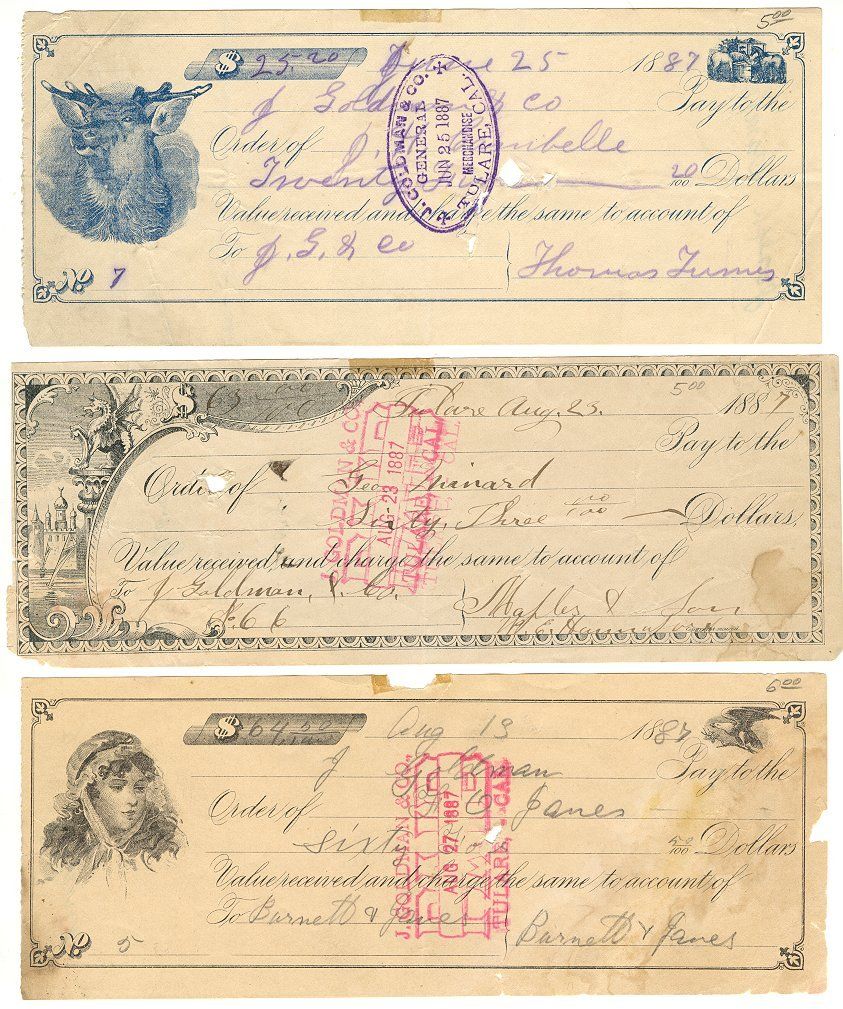 5.00
$ 25.20 June 25 1887
J Goldman & Co Pay to the
Order of J.
Twenty 20/100 Dollars
Value received and charge the same to account of
To J. G. & Co
Thomas
No 7
J. GOLDMAN & CO.
GENERAL
JUN 25 1887
MERCHANDISE
TULARE, CAL.
5.00
$ 63 Tulare Aug. 23. 1887
Pay to the
Order of Geo. Minard
Sixty Three Dollars
Value received and charge the same to account of
To J Goldman, & Co.
& Son
J. GOLDMAN & CO.
PAID
AUG 23 1887
TULARE, CAL.
6.00
$ 64 50/100 Aug 13 1887
J Goldman Pay to the
Order of Janes
Sixty 50/100 Dollars
Value received and charge the same to account of
To Burnett & Janes
Burnett & Janes
No 5
J. GOLDMAN & CO.,
PAID
AUG 27 1887
TULARE, CAL.